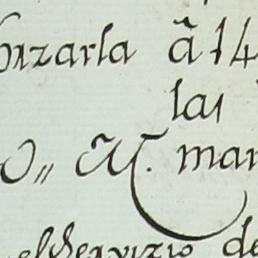 nzarla â 14
las
O,, M. man
el Servizio de